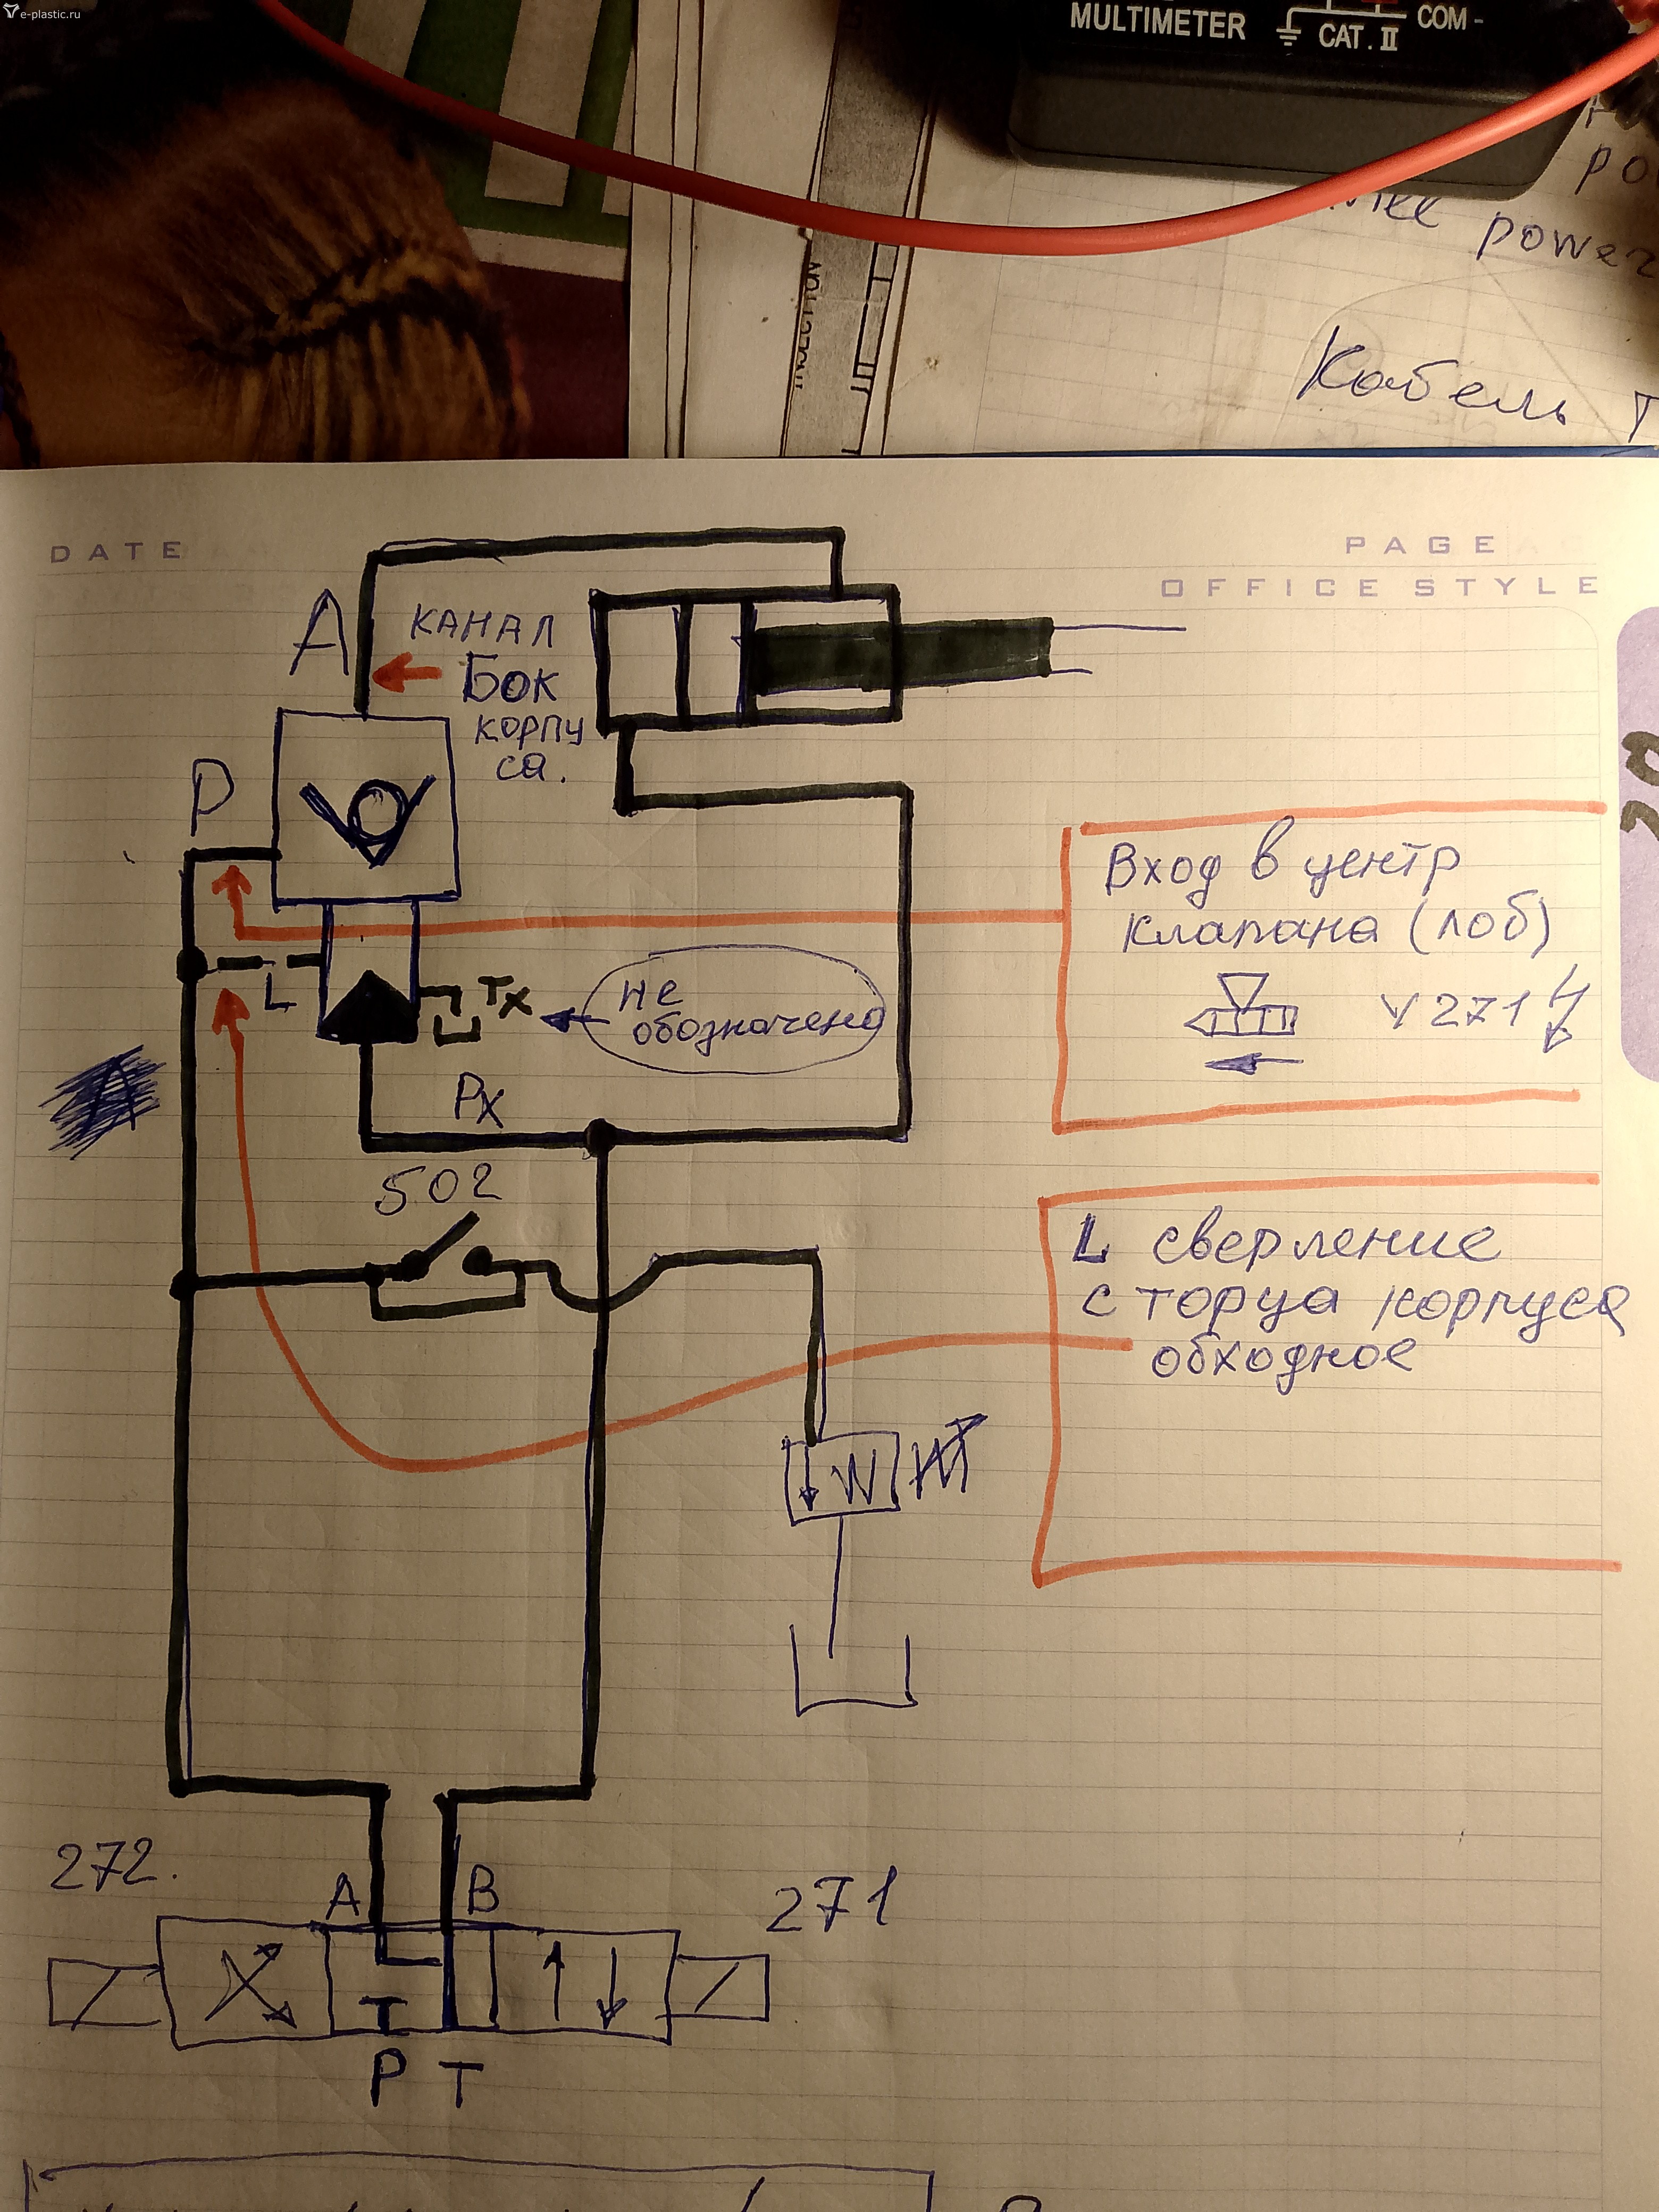 e-plastic.ru
MULTIMETER
CAT. II
COM -
power
INJECTION
Кабель T
DATE
PAGE
OFFICE STYLE
A
КАНАЛ
БОК
КОРПУ
СА.
P
Вход в центр
клапана (лоб)
Y271
L
Tx
не
обозначено
Px
502
L сверление
с торца корпуса
обходное
W
272.
A
B
271
P T